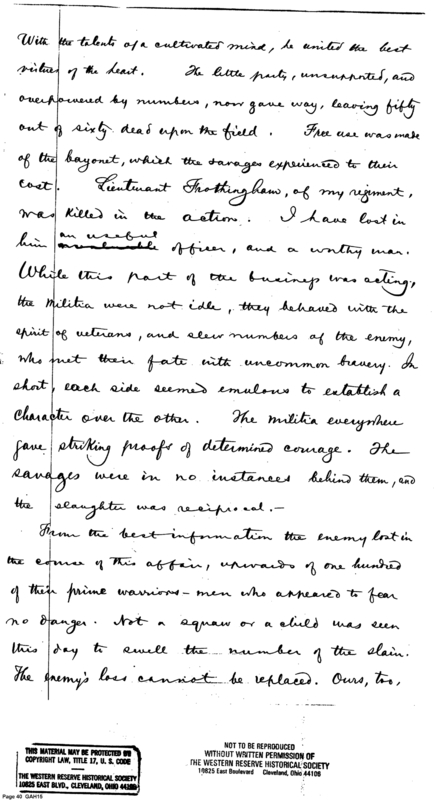 With the talents of a cultivated mind, he united the best
virtues of the heart. The little party, unsupported, and
overpowered by numbers, now gave way, leaving fifty
out of sixty dead upon the field. Free use was made
of the bayonet, which the savages experienced to their
cost. Lieutenant Frothingham, of my regiment,
was killed in the action. I have lost in
an useful
him invaluable officer, and a worthy man.
While this part of the business was acting,
the militia were not idle, they behaved with the
spirit of veterans, and slew numbers of the enemy,
who met their fate with uncommon bravery. In
short, each side seemed emulous to establish a
character over the other. The militia everywhere
gave striking proofs of determined courage. The
savages were in no instances behind them, and
the slaughter was reciprocal.—
From the best information the enemy lost in
the course of this affair, upwards of one hundred
of their prime warriors – men who appeared to fear
no danger. Not a squaw or a child was seen
this day to swell the number of the slain.
The enemy's loss cannot be replaced. Ours, too,
THIS MATERIAL MAY BE PROTECTED BY
COPYRIGHT LAW, TITLE 17, U. S. CODE
THE WESTERN RESERVE HISTORICAL SOCIETY
10825 EAST BLVD., CLEVELAND, OHIO 44106
NOT TO BE REPRODUCED
WITHOUT WRITTEN PERMISSION OF
THE WESTERN RESERVE HISTORICAL SOCIETY
10825 East Boulevard Cleveland, Ohio 44106
Page 40 GAH15